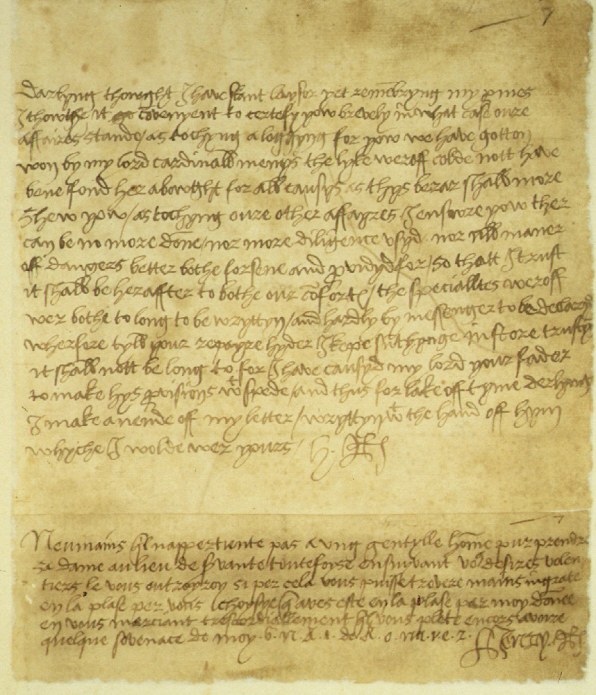 7
Darlyng thowght I have skant laysor yet remembryng my promes
I thowthe it convenyent to certefy yow brevely in what case oure
affaires stande / as tochyng a loggyng for yow we have gotton
won by my lord cardinalls menys the lyke weroff colde nott have
bene fond her abowght for all causys as thys berar shall more
shew yow / as tochyng oure other affayres I ensuore yow ther
can be no more done / nor more diligence usyd nor all maner
off dangers better bothe forsene and providyd for / so thatt I trust
it shall be heraffter to bothe our comfort / the specialltes weroff
wer bothe to long to be wryttyn / and hardly by messenger to be declaryd
wherfore tyll your repayre hyder I kepe sumthynge in store trustyng
it shall nott be long to for I have causyd my lord your fader
to make hys provisions wt spede / and thus for lake off tyme derlyng
I make an ende off my letter / wryttyn wt the hand off hym
whyche I wolde wer yours / H. R
Neumains qu il n appertiente pas a ung gentylle home pur prendre
sa dame au lieu de servante toutefoise ensuivant vos desires volen
tiers le vous outroyroy si per cela vous puisse trovere mains ingrate
en la plase per vous choisye q aves este en la plase par moy donee
en vous merciant trescordiallement qu il vous plete encors avoire
quelque sovenace de moy . 6 . n . R . 1 . de R . o . m . v . e . z . Henry R